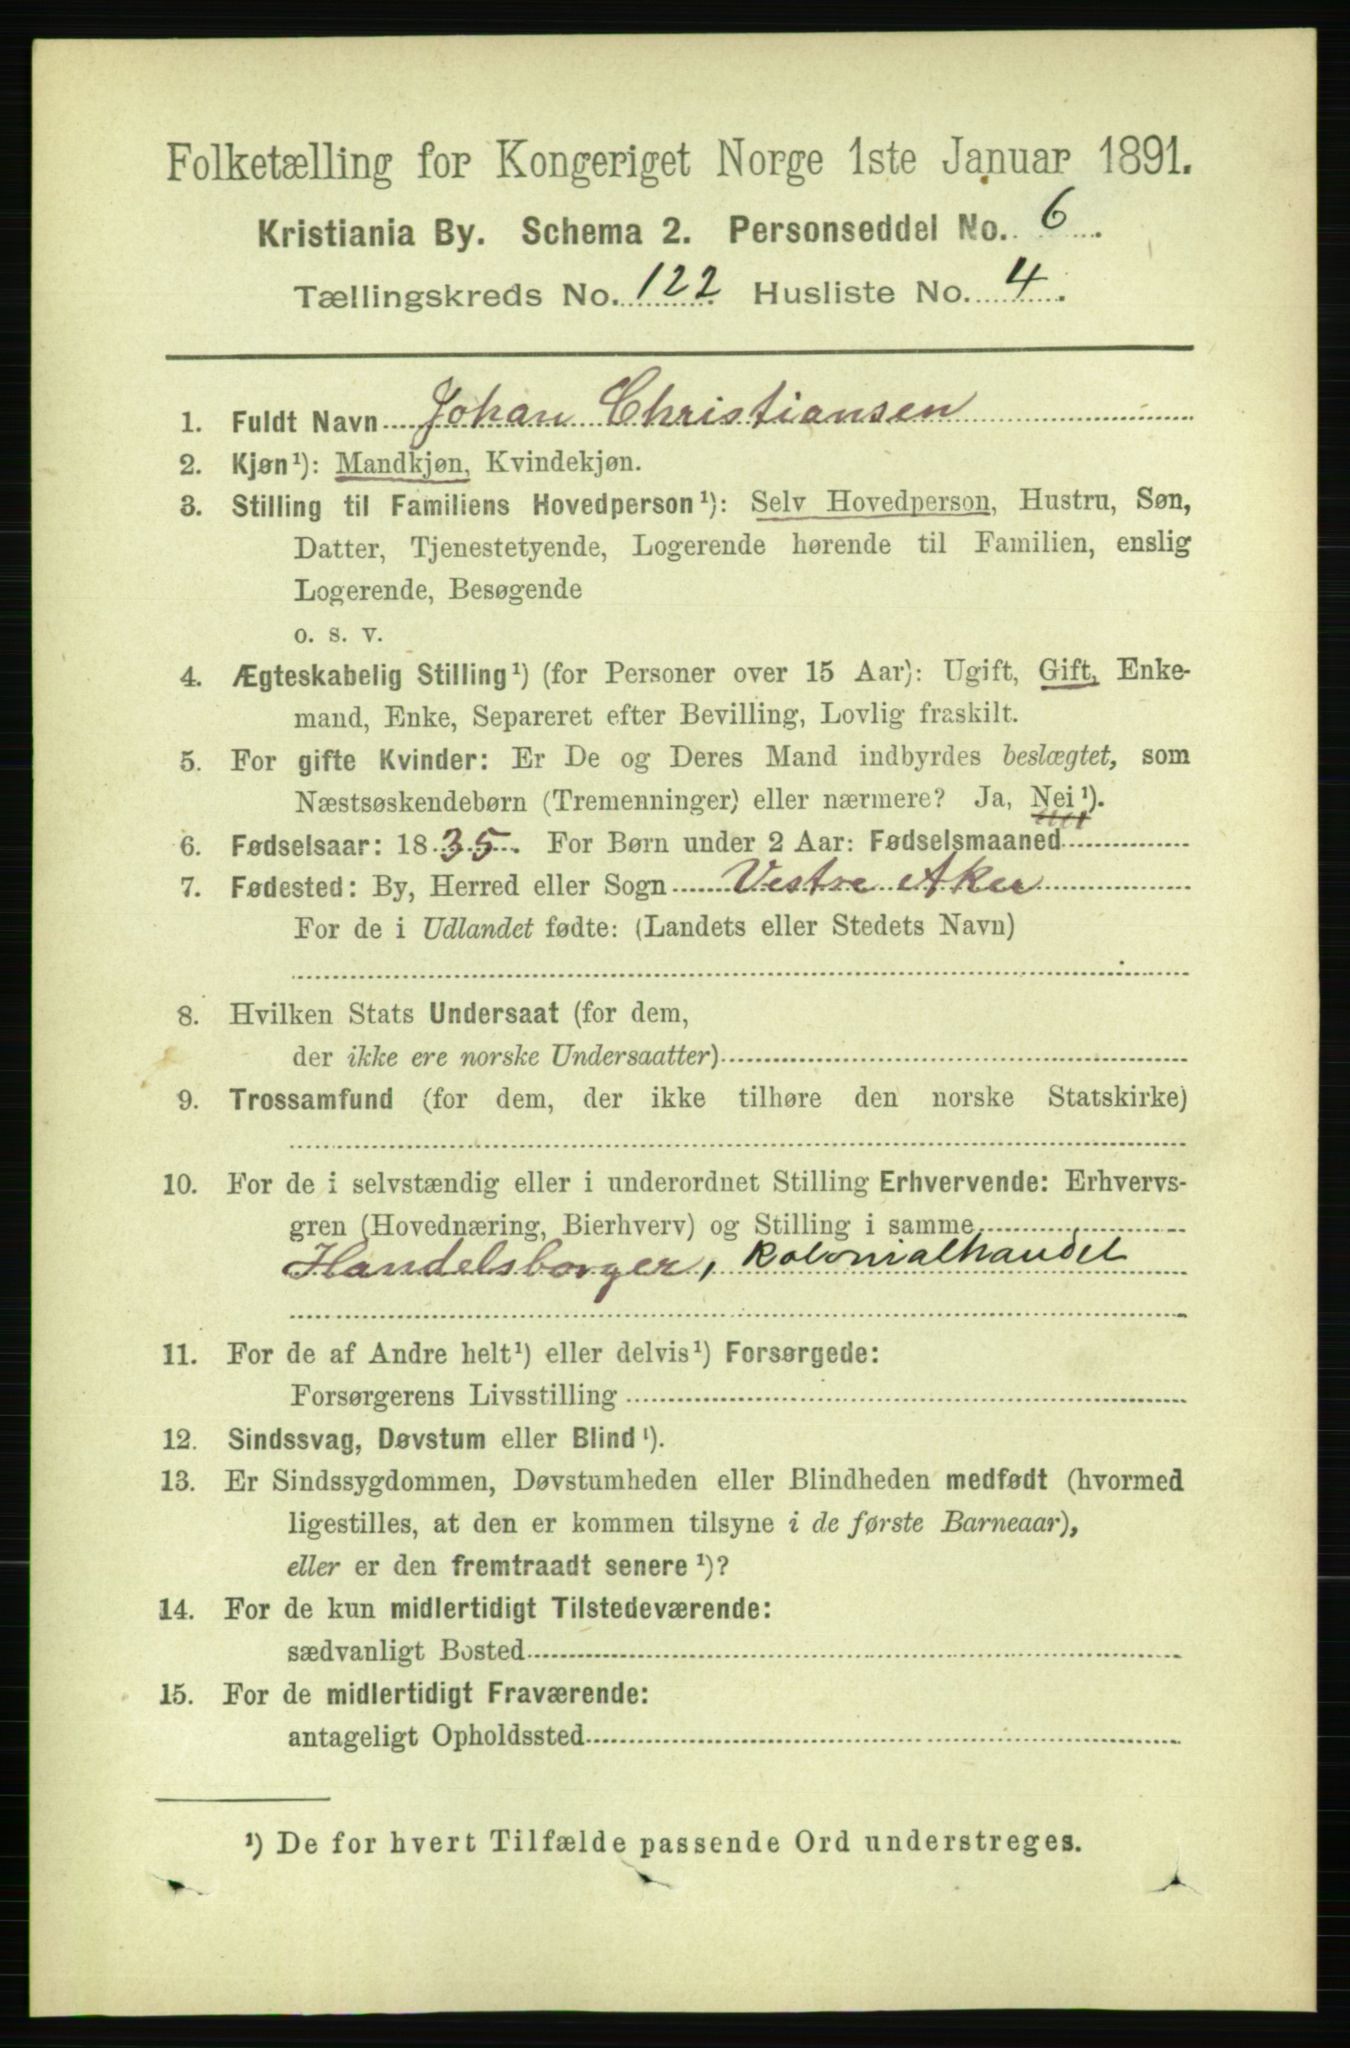 Folketælling for Kongeriget Norge 1ste Januar 1891.
Kristiania By. Schema 2. Personseddel No. 6.
Tællingskreds No. 122 Husliste No. 4.
1. Fuldt Navn Johan Christiansen
2. Kjøn¹): Mandkjøn, Kvindekjøn.
3. Stilling til Familiens Hovedperson¹): Selv Hovedperson, Hustru, Søn,
Datter, Tjenestetyende, Logerende hørende til Familien, enslig
Logerende, Besøgende
o. s. v.
4. Ægteskabelig Stilling¹) (for Personer over 15 Aar): Ugift, Gift, Enke-
mand, Enke, Separeret efter Bevilling, Lovlig fraskilt.
5. For gifte Kvinder: Er De og Deres Mand indbyrdes beslægtet, som
Næstsøskendebørn (Tremenninger) eller nærmere? Ja, Nei¹).
6. Fødselsaar: 1835. For Børn under 2 Aar: Fødselsmaaned
7. Fødested: By, Herred eller Sogn Vestre Aker
For de i Udlandet fødte: (Landets eller Stedets Navn)
8. Hvilken Stats Undersaat (for dem,
der ikke ere norske Undersaatter)
9. Trossamfund (for dem, der ikke tilhøre den norske Statskirke)
10. For de i selvstændig eller i underordnet Stilling Erhvervende: Erhvervs-
gren (Hovednæring, Bierhverv) og Stilling i samme
Handelsborger, Kolonialhandel
11. For de af Andre helt¹) eller delvis¹) Forsørgede:
Forsørgerens Livsstilling
12. Sindssvag, Døvstum eller Blind¹).
13. Er Sindssygdommen, Døvstumheden eller Blindheden medfødt (hvormed
ligestilles, at den er kommen tilsyne i de første Barneaar),
eller er den fremtraadt senere¹)?
14. For de kun midlertidigt Tilstedeværende:
sædvanligt Bosted
15. For de midlertidigt Fraværende:
antageligt Opholdssted
¹) De for hvert Tilfælde passende Ord understreges.